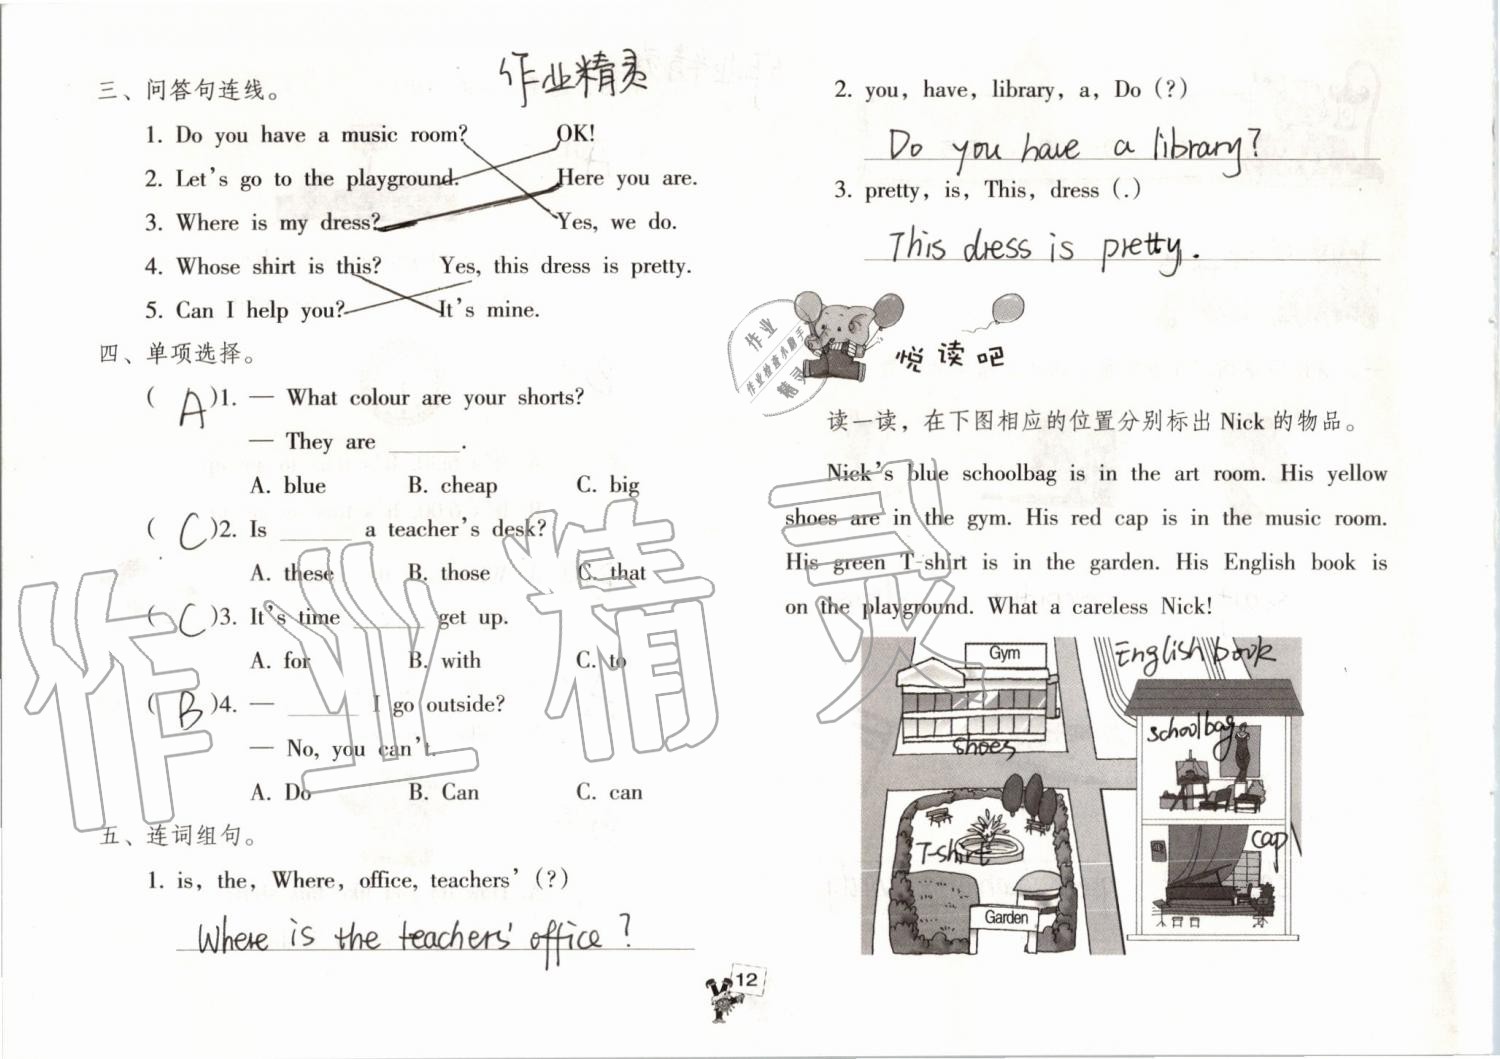 作业精灵
三、问答句连线。
1. Do you have a music room? OK!
2. Let's go to the playground. Here you are.
3. Where is my dress? Yes, we do.
4. Whose shirt is this? Yes, this dress is pretty.
5. Can I help you? It's mine.
四、单项选择。
( A )1. — What colour are your shorts?
— They are ______.
A. blue B. cheap C. big
( C )2. Is ______ a teacher's desk?
A. these B. those C. that
( C )3. It's time ______ get up.
A. for B. with C. to
( B )4. — ______ I go outside?
— No, you can't.
A. Do B. Can C. can
五、连词组句。
1. is, the, Where, office, teachers' (?)
Where is the teachers' office?
2. you, have, library, a, Do (?)
Do you have a library?
3. pretty, is, This, dress (.)
This dress is pretty.
作业
作业检查小助手
精灵
悦读吧
读一读，在下图相应的位置分别标出 Nick 的物品。
Nick's blue schoolbag is in the art room. His yellow
shoes are in the gym. His red cap is in the music room.
His green T-shirt is in the garden. His English book is
on the playground. What a careless Nick!
Gym
English book
schoolbag
shoes
cap
T-shirt
Garden
作业精灵
12